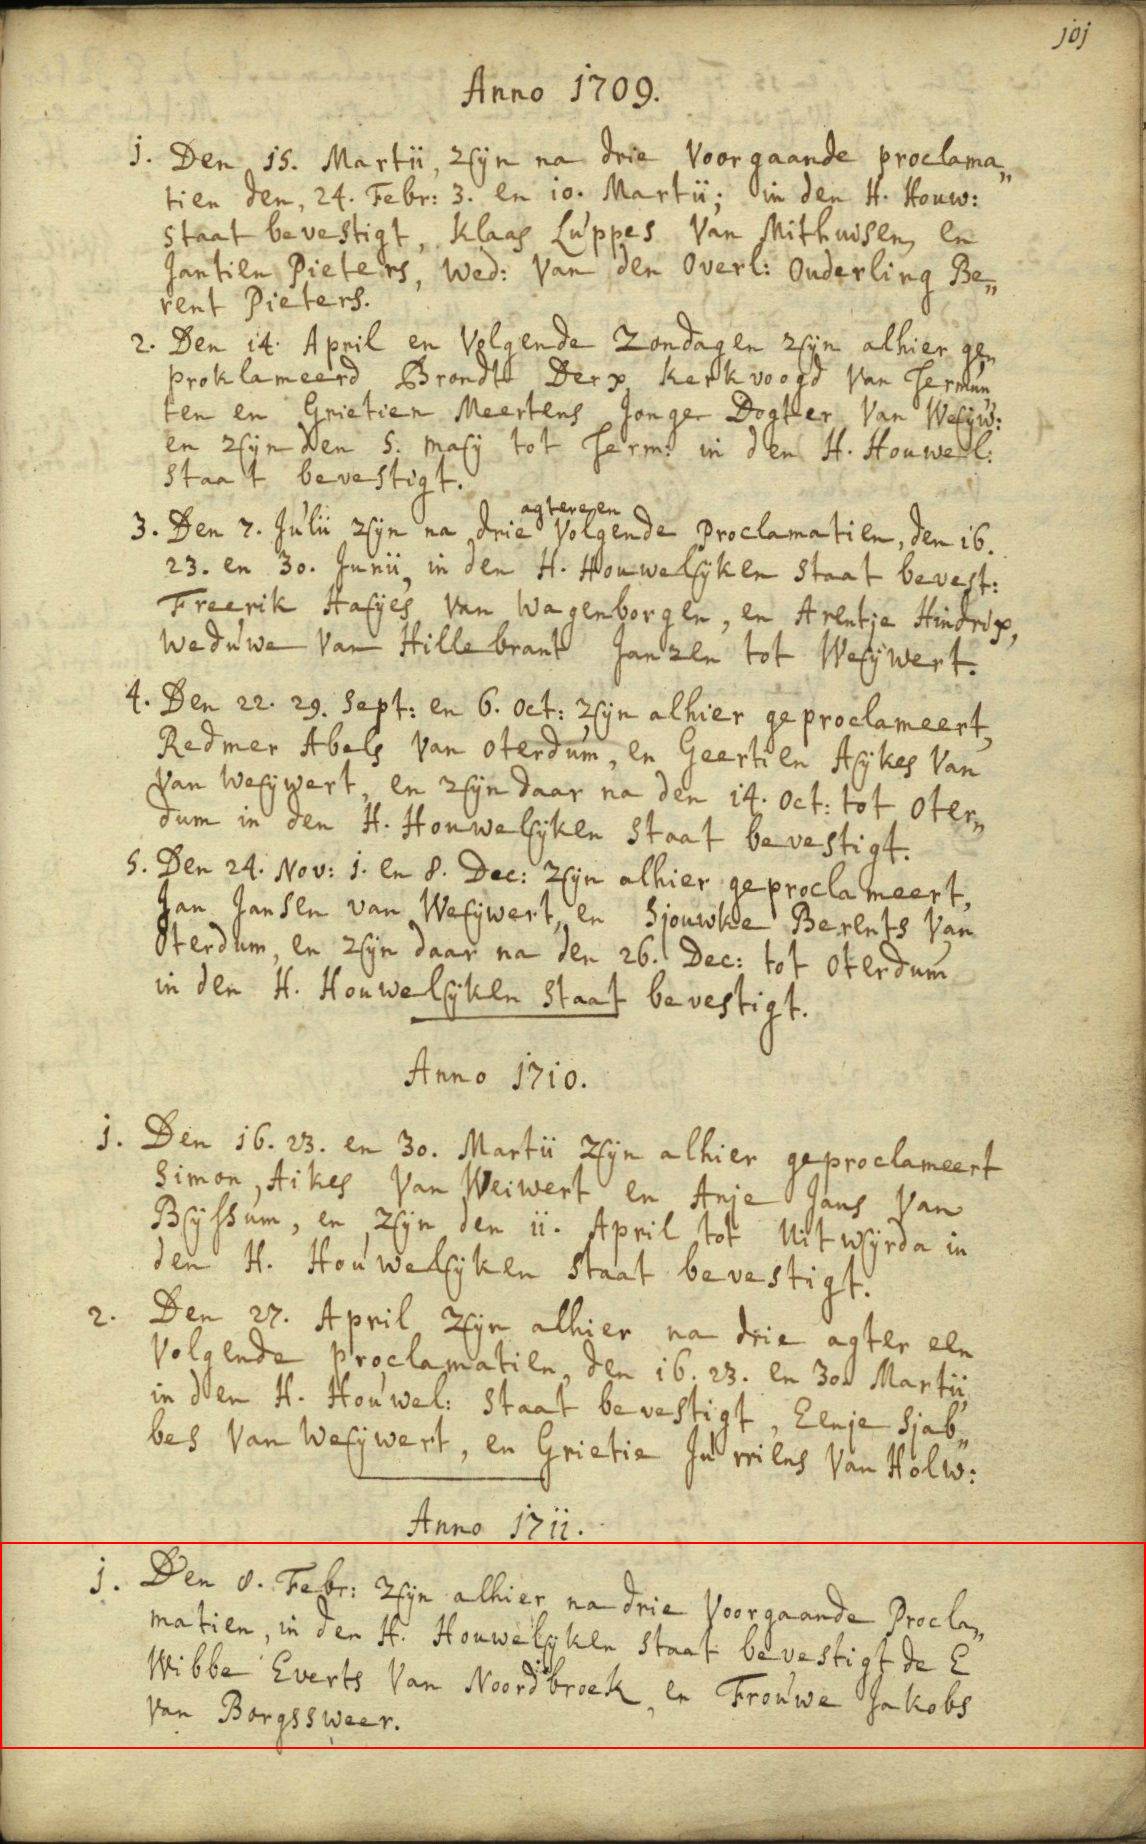 joj
Anno 1709.
j. Den 15. Martii, zijn na drie Voorgaande proclama„
tien den, 24. Febr: 3. en 10. Martii; in den H. Houw:
staat bevestigt, Klaas Luppes Van Mithuisen, en
Jantien Pieters, Wed: Van den Overl: Ouderling Be„
rent Pieters.
2. Den 14. April en Volgende Zondagen zijn alhier ge„
proklameerd Brondt Derx, Kerkvoogd Van Termun„
ten en Grietien Meertens Jonge Dogter Van Weijw:
en zijn den 5. maij tot Term: in den H. Houwel:
staat bevestigt.
3. Den 7. Julii zijn na drie agtereen Volgende Proclamatien, den 16.
23. en 30. Junii, in den H. Houwelijken staat bevest:
Freerik Haijes Van Wagenborgen, en Arentje Hindrix,
Weduwe Van Hillebrant Janzen tot Weijwert.
4. Den 22. 29. Sept: en 6. Oct: zijn alhier geproclameert,
Redmer Abels Van Oterdum, en Geertien Aijkes Van
Van Weijwert, en zijn daar na den 14. Oct: tot Oter„
dum in den H. Houwelijken staat bevestigt.
5. Den 24. Nov: 1. en 8. Dec: zijn alhier geproclameert,
Jan Jansen van Weijwert, en Sjouwke Berents Van
Oterdum, en zijn daar na den 26. Dec: tot Oterdum
in den H. Houwelijken staat bevestigt.
Anno 1710.
j. Den 16. 23. en 30. Martii zijn alhier geproclameert
Simon, Aikes Van Weiwert en Anje Jans Van
Bijssum, en zijn den ii. April tot Uitwijrda in
den H. Houwelijken staat bevestigt.
2. Den 27. April zijn alhier na drie agter een
Volgende proclamatien, den 16. 23. en 30. Martii,
in den H. Houwel: staat bevestigt, Eenje Sjab„
bes Van Weijwert, en Grietie Jurriens Van Holw:
Anno 17ii.
j. Den 8. Febr: zijn alhier na drie Voorgaande Procla„
matien, in den H. Houwelijken staat bevestigt de E
Wibbe Everts Van Noordbroek, en Frouwe Jakobs
Van Borgssweer.